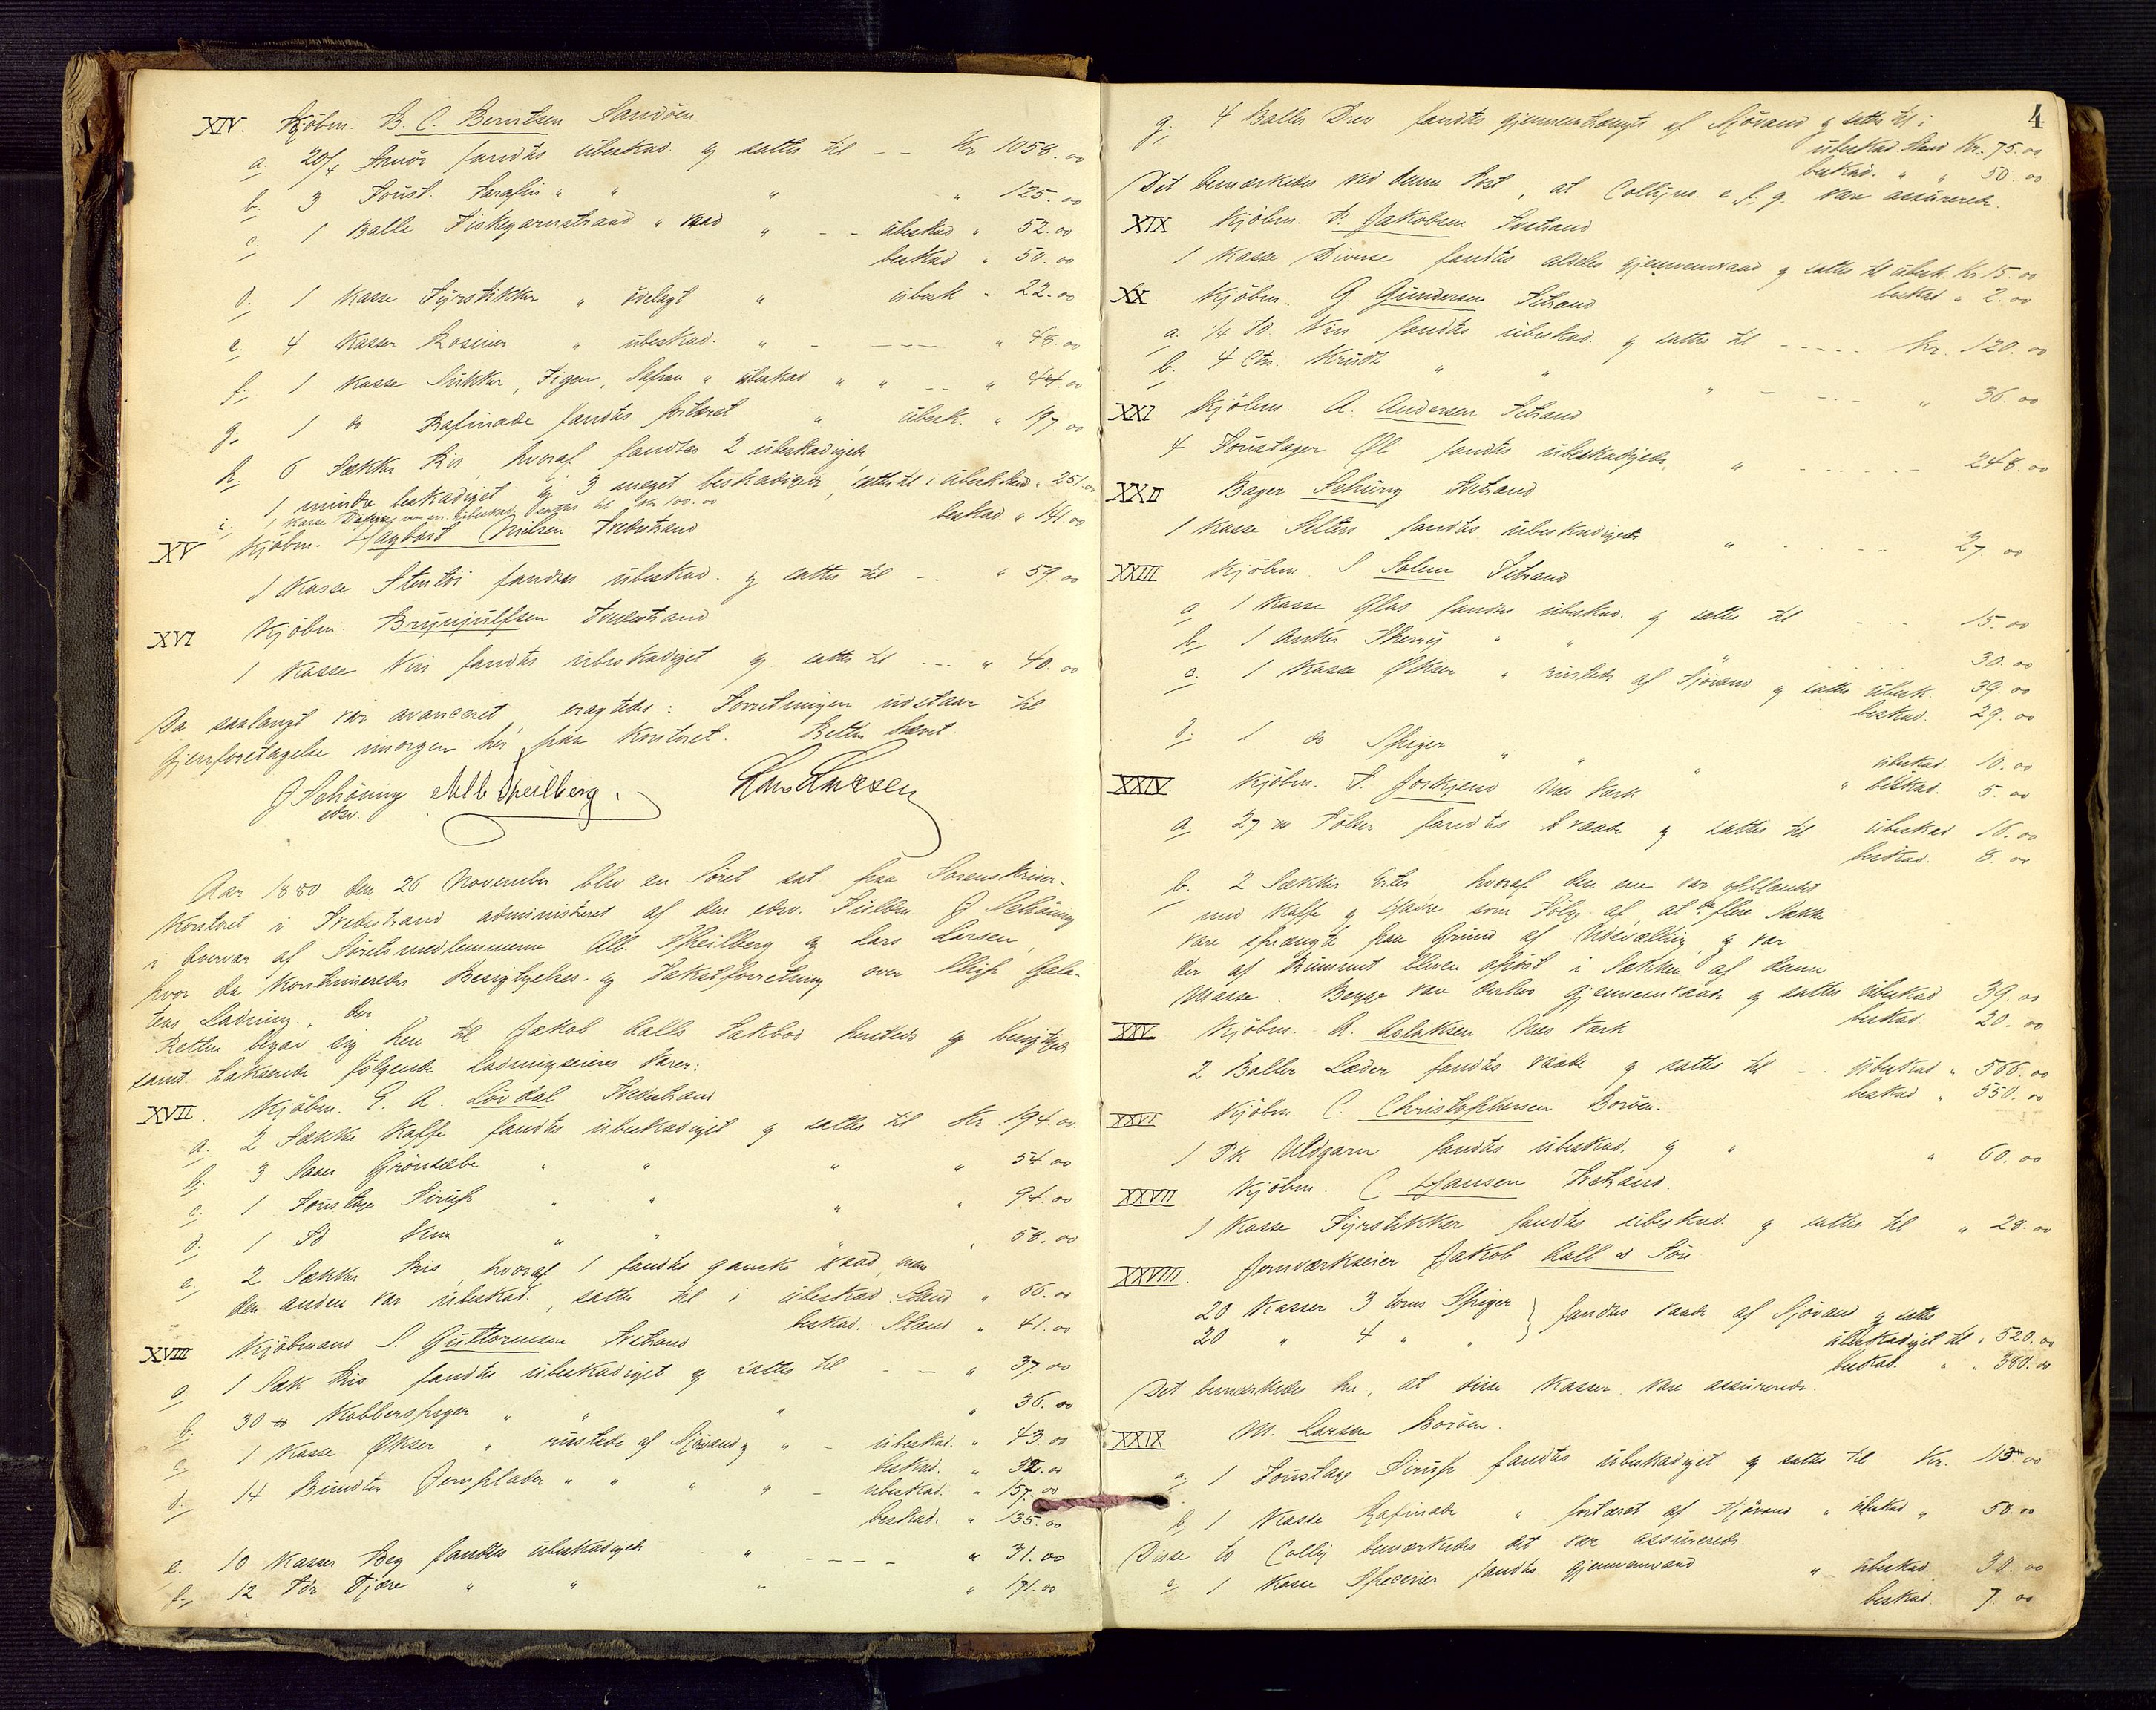 XIV. Kjöbm. B. C. Berntsen Sandöen
a. 20/4 Smör fandtes übeskad. og sattes til - - Kr 1058.00
b. 3 Joust. Parafin " " " " 125.00
c. 1 Balle Fiskegarnstraad " vaad " - - übeskad " 52.00
beskad " 50.00
d. 1 Kasse Fÿrstikker " ödelagt " übesk " 22.00
e. 4 Kasser Rosiner " übeskad. " - --- " 48.00
f. 1 Kasse Sükker, Figen, Safran " übeskad " " -- " 44.00
g. 1 do Rafinade fandtes fortæret " übesk. " 197.00
h. 6 Sække Ris, hvoraf fandtes 2 übeskadigede,
1 mindre beskadiget og 3 meget beskadigede, sattes til i übesk Stand " 251.00
beskad. " 141.00
i. 1 Kasse übeskad. sattes til Kr 100.00
XV Kjöbm. Hagbart Nielsen Tvedestrand
1 Kasse Stentöi fandtes übeskad. og sattes til -. " 59.00
XVI Kjöbm. Brynjülfsen Tvedestrand
1 Kasse Vin fandtes übeskadiget og sattes til --- " 40.00
Da saalangt var avanceret eragtedes: Forretningen udstaar til
Gjenforetagelse imorgen her paa Kontoret. Retten hævet.
J Schöning Alb Speilberg. Lars Larsen
edsv.
Aar 1880 den 26 November blev en Söret sat paa Sorenskriver-
Kontoret i Tvedestrand administreret af den edsv. Fuldm J Schöning
i Overvær af Söretsmedlemmerne Alb. Speilberg og Lars Larsen,
hvor da Kontinueredes Besigtigelses- og Takstforretning over Skip Gala-
teas Ladning. der
Retten begav sig hen til Jakob Aalls Pakbod og besigtigede
samt takserede fölgende Ladningseieres Varer:
XVII. Kjöbm. E. A. Lövdal Tvedestrand
a. 2 Sække Kaffe fandtes übeskadiget og sattes til Kr. 194.00
b. 3 Grönsæbe " " " " 54.00
c. 1 Joustage Sirup " " " " 94.00
d. 1 Fd Vin " " " " 58.00
e. 2 Sække Ris, hvoraf 1 fandtes ganske vaad, men
den anden var übeskad., sattes til i übeskad Stand " 66.00
beskad. Stand " 41.00
XVIII Kjöbmand S. Guttormsen Tvetrand
a. 1 Sæk Ris fandtes übeskadiget og sattes til - - " 37.00
b. 30 Kobberspiger " " " " 36.00
c. 1 Kasse Økser " rüstede af Sjövand og " - übeskad. " 43.00
beskad. " 32.00
d. 14 Bündter Jernplader " " " " - übeskad. " 157.00
beskad. " 135.00
e. 10 Kasser Beg fandtes übeskadigede " ---- " 31.00
f. 12 Tdr Tjære " " " " 171.00
4
g. 4 Baller Drev fandtes gjennemtrængte af Sjövand og sattes til i
übeskad. Stand Kr. 75.00
beskad. " " 50.00
Det bemærkedes ved denne Post, at Collyne e. f. g. vare assurerede.
XIX Kjöbm. P. Jakobsen Tvetrand
1 Kasse Diverse fandtes aldeles gjennemvaad og sattes til übesk. Kr 15.00
beskad " 2.00
XX Kjöbm. G. Gundersen Tvetrand
a. 1/4 Fd. Vin fandtes übeskad. og sattes til ----- Kr. 120.00
b. 4 Ctn. Krudt " " " - --- " 36.00
XXI Kjöbm. A. Andersen Tvetrand
4 Joustager Øl fandtes übeskadigede " ------ 248.00
XXII Bager Schurig Tvetrand
1 Kasse fandtes übeskadiget " ---- 27.00
XXIII Kjöbm S. Solem Tvetrand
a 1 Kasse Glas fandtes übeskad. og sattes til - -- 15.00
b. 1 Anker Sherry " " " 30.00
c. 1 Kasse Økser " rüstede af Sjövand og sattes übesk. 39.00
beskad. 29.00
d. 1 do Spiger " " " übeskad. 10.00
" beskad. 5.00
XXIV. Kjöbm. T. Næs Værk
a 27 Pölser fandtes vaade og sattes til übeskad 16.00
beskad. 8.00
b. 2 Sække Erter, hvoraf den ene var opblandet
med Kaffe og som Fölge af, at flere Sække
vare sprængte paa Grund af Udsvælling, og var
der af Rummet bleven i Sækken af denne
Masse. Begge vare derhos gjennemvaade og sattes übeskad 39.00
beskad. 20.00
XXV Kjöbm. A. Aslaksen Næs Værk
2 Baller Læder fandtes vaade og sattes til - - übeskad " 566.00
beskad " 550.00
XXVI Kjöbm. C. Christophersen Boröen.
1 Pk Uldgarn fandtes übeskad. og " " 60.00
XXVII Kjöbm. C. Hansen Tvetrand.
1 Kasse Fÿrstikker fandtes übeskad. og sattes til " 28.00
XXVIII. Jernværkseier Jakob Aall & Sön
20 Kasser 3 toms Spiger } fandtes vaade af Sjövand og sattes
20 " 4 " " übeskadiget til " 520.00
beskad. " " 380.00
Det bemærkedes her, at disse Kasser vare assurerede.
XXIX M. Larsen Boröen.
a, 1 Joustage Sirup fandtes übeskadiget og sattes til Kr. 113.00
b, 1 Kasse Rafinade " fortæret af Sjövand " übeskad " 58.00
Disse to Collÿ bemærkedes at var assurerede.
c, 1 Kasse Specerier fandtes gjennemvaad " übeskad. 30.00
beskad. 7.00